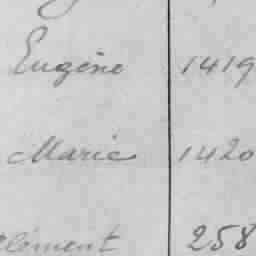 Eugène 1419
Marie 1420
Clément 258